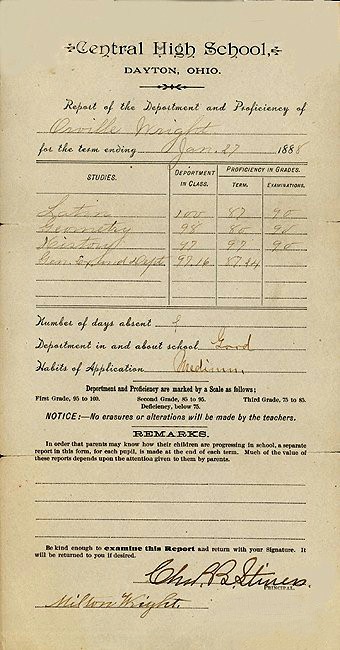 Central High School,
DAYTON, OHIO.
Report of the Deportment and Proficiency of
Orville Wright
for the term ending Jan. 27 1888
STUDIES. DEPORTMENT IN CLASS. PROFICIENCY IN GRADES.
TERM. EXAMINATIONS.
Latin 100 87 90
Geometry 98 80 90
History 97 97 90
Gen. 97.16 87.14
Number of days absent
Deportment in and about school Good
Habits of Application Medium
Deportment and Proficiency are marked by a Scale as follows;
First Grade, 95 to 100. Second Grade, 85 to 95. Third Grade, 75 to 85.
Deficiency, below 75.
NOTICE:—No erasures or alterations will be made by the teachers.
REMARKS.
In order that parents may know how their children are progressing in school, a separate
report in this form, for each pupil, is made at the end of each term. Much of the value of
these reports depends upon the attention given to them by parents.
Be kind enough to examine this Report and return with your Signature. It
will be returned to you if desired.
Chas. B. Stivers.
PRINCIPAL.
Milton Wright.